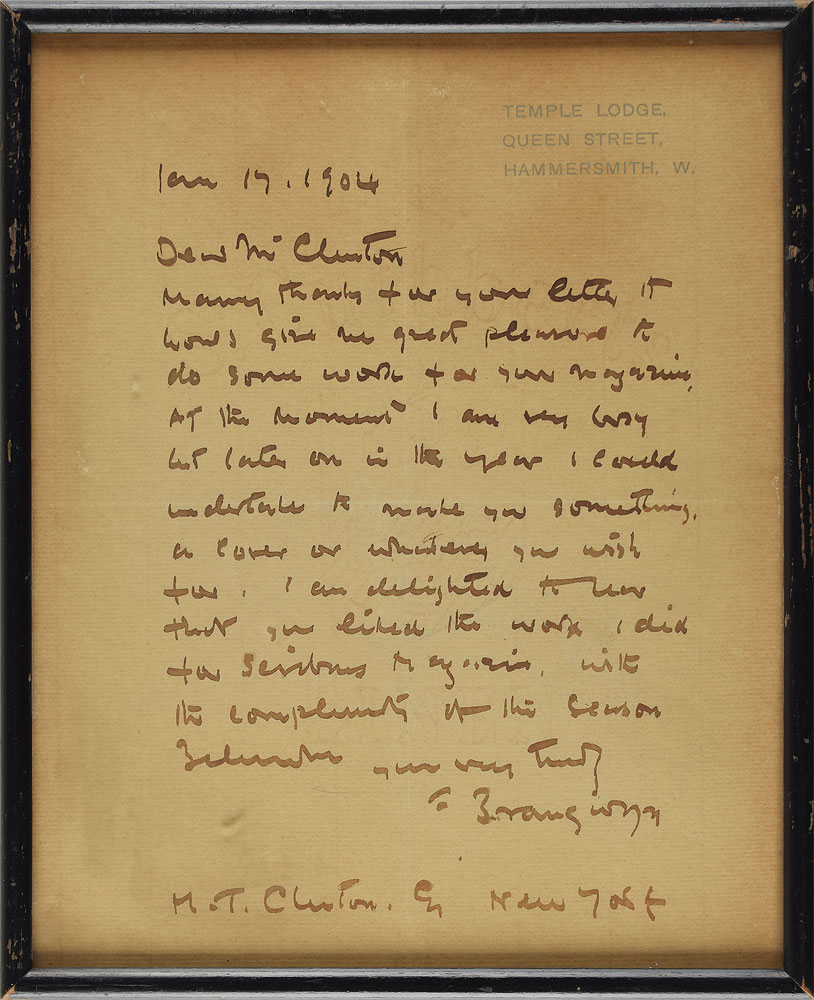 TEMPLE LODGE,
QUEEN STREET,
HAMMERSMITH, W.
Jan 17. 1904
Dear Mr Clinton
Many thanks for your letter it
would give me great pleasure to
do some work for your magazine,
At the moment I am very busy
but later on in the year I could
undertake to make you something,
a cover or whatever you wish
for. I am delighted to hear
that you liked the work I did
for Scribners Magazine. with
the compliments of the Season
yours very truly
F Brangwyn
H. T. Clinton. Esq New York